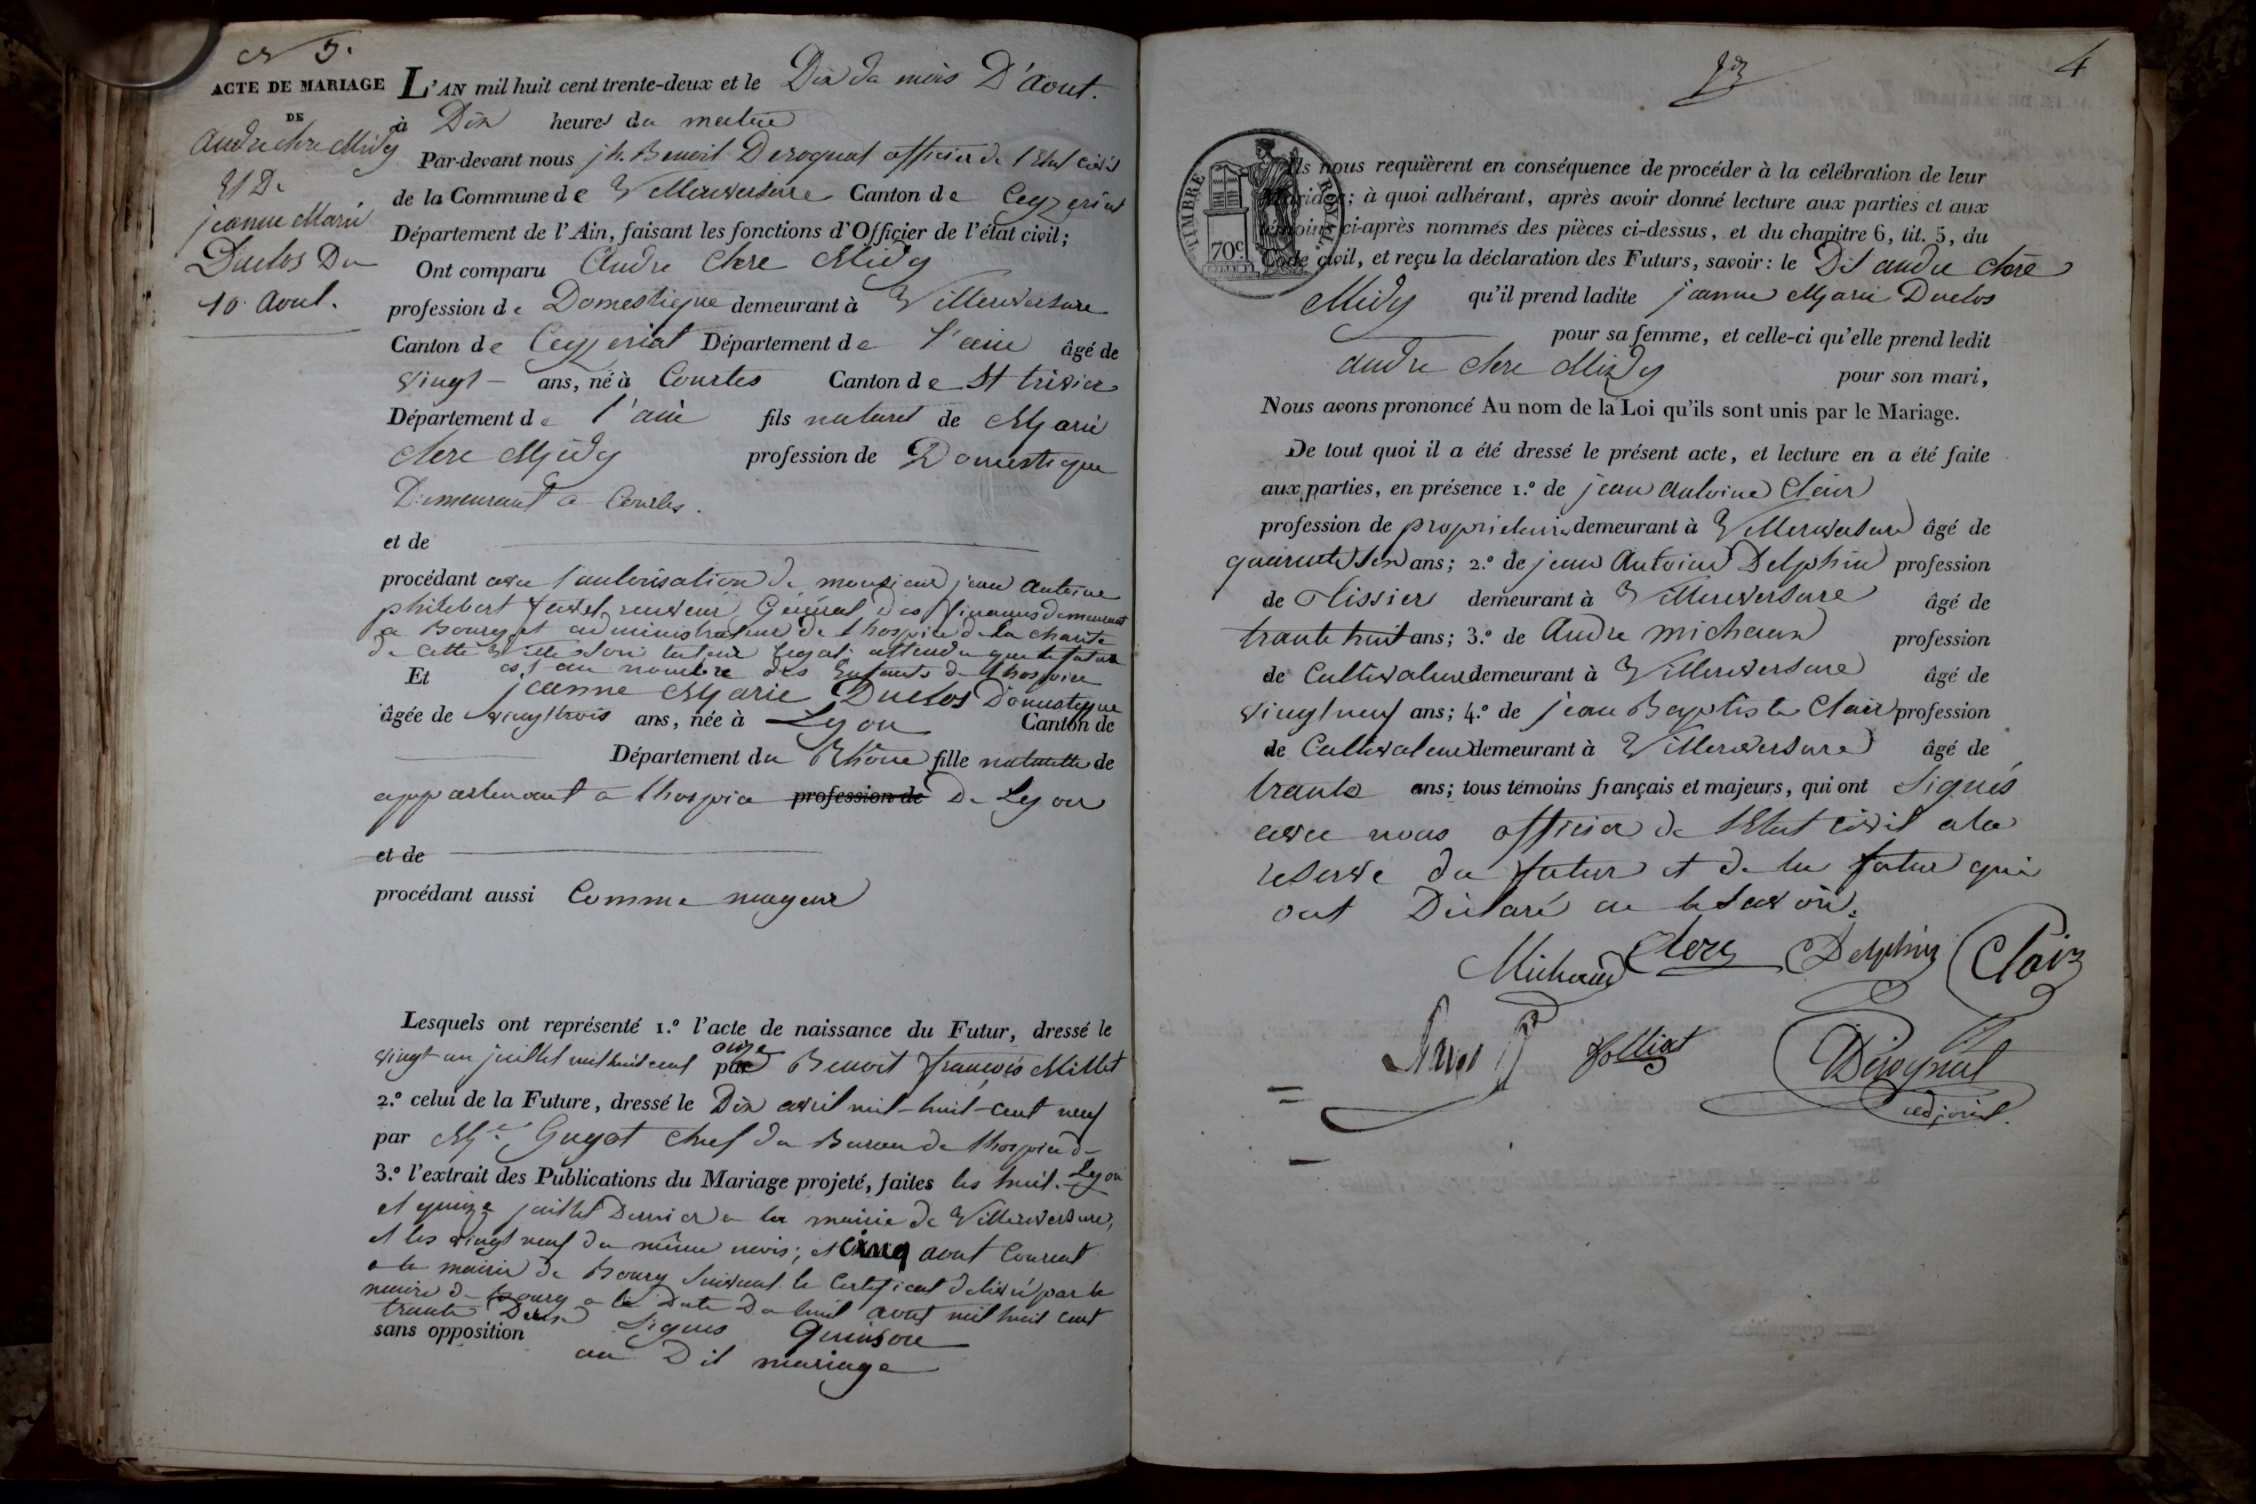 N 5.
ACTE DE MARIAGE
DE
andre clere Midy
Et De
jeanne Marie
Duclos Du
10 Aout.
L'AN mil huit cent trente-deux et le Dix du mois D'Aout.
à Dix heures du matin
Par-devant nous jh. Benoit Derognat officier de l'Etat civil
de la Commune de Villereversure Canton de Ceyzeriat
Département de l'Ain, faisant les fonctions d'Officier de l'état civil;
Ont comparu Andre Clere Midy
profession de Domestique demeurant à Villereversure
Canton de Ceyzeriat Département de l'ain âgé de
vingt ans, né à Courtes Canton de St trivier
Département de l'ain fils naturel de Marie
clere Midy profession de Domestique
Demeurant a Courtes.
et de
procédant avec l'autorisation de monsieur jean antoine
philibert receveur Général des finances demeurant
a Bourg et administrateur de l'hospice de la charité
de cette Ville son tuteur legal attendu que le futur
est au nombre des Enfants de l'hospice
Et jeanne Marie Duclos Domestique
âgée de vingt trois ans, née à Lyon Canton de
Département du Rhône fille naturelle de
appartenant a l'hospice profession de De Lyon
et de
procédant aussi Comme mageur
Lesquels ont représenté 1.º l'acte de naissance du Futur, dressé le
vingt un juillet mil huit cent onze par Benoit françois Millet
2.º celui de la Future, dressé le Dix avril mil-huit-cent neuf
par Mr. Guyot chef du Bureau de l'hospice de
Lyon
3.º l'extrait des Publications du Mariage projeté, faites les huit
et quinze juillet Dernier a la mairie de Villereversure,
et les vingt neuf du même mois; et cinq aout Courent
a la mairie de Bourg suivant le Certificat delivré par le
maire de Bourg a la Date du huit aout mil huit cent
trente Deux Signés Quinson
sans opposition au Dit mariage
4
TIMBRE ROYAL
70c.
Ils nous requièrent en conséquence de procéder à la célébration de leur
Mariage; à quoi adhérant, après avoir donné lecture aux parties et aux
témoins ci-après nommés des pièces ci-dessus, et du chapitre 6, tit. 5, du
Code civil, et reçu la déclaration des Futurs, savoir: le Dit andre clere
Midy qu'il prend ladite jeanne Marie Duclos
pour sa femme, et celle-ci qu'elle prend ledit
andre clere Midy pour son mari,
Nous avons prononcé Au nom de la Loi qu'ils sont unis par le Mariage.
De tout quoi il a été dressé le présent acte, et lecture en a été faite
aux parties, en présence 1.º de jean antoine Clair
profession de proprietaire demeurant à Villereversure âgé de
quarante six ans; 2.º de jean Antoine Delphin profession
de Tissier demeurant à Villereversure âgé de
trante huit ans; 3.º de Andre michaux profession
de Cultivateur demeurant à Villereversure âgé de
vingt neuf ans; 4.º de jean Baptiste Clair profession
de Cultivateur demeurant à Villereversure âgé de
trante ans; tous témoins français et majeurs, qui ont Signés
avec nous officier de l'Etat civil a la
reserve du futur et de la futur qui
ont Déclaré ne le savoir.
Michaud Clerc Delphin Clair
Folliat Dérognat
adjoint.